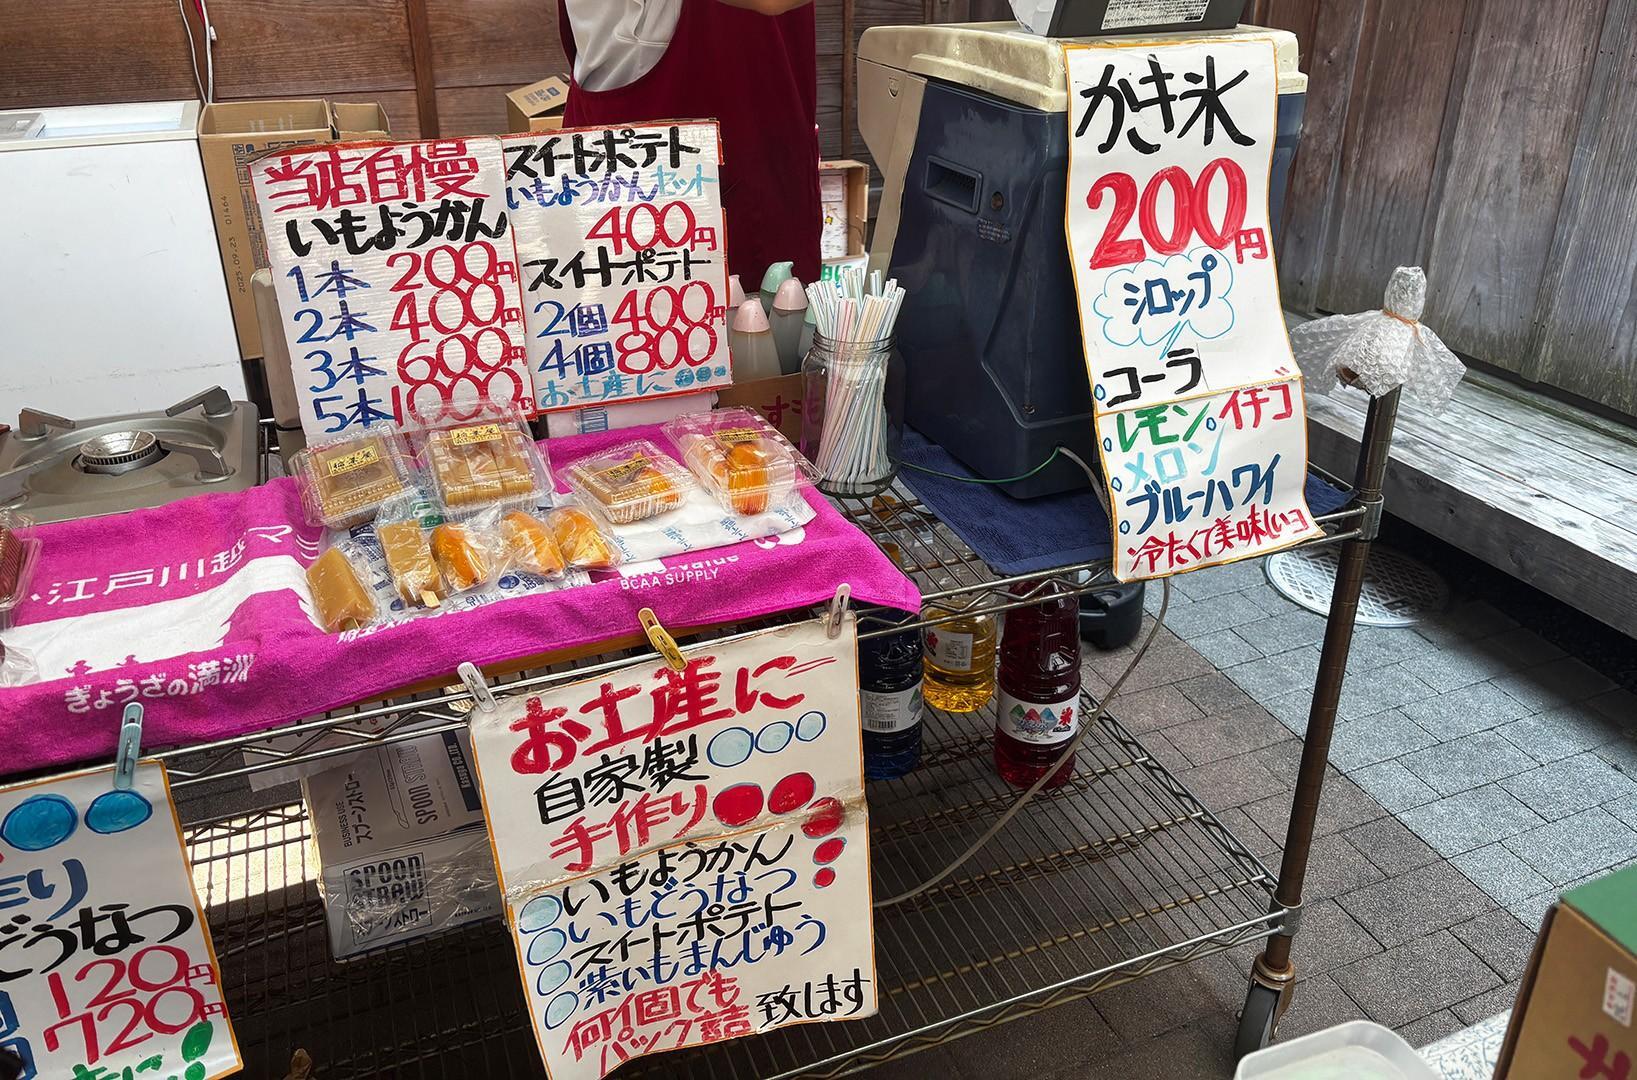 当店自慢
いもようかん
1本 200円
2本 400円
3本 600円
5本 1000円
スイートポテト
いもようかんセット
400円
スイートポテト
2個 400円
4個 800
お土産に
かき氷
200円
シロップ
コーラ
レモン イチゴ
メロン
ブルーハワイ
冷たくて美味しいヨ
江戸川越マ
ぎょうざの満洲
BCAA SUPPLY
お土産に
自家製
手作り
いもようかん
いもどうなつ
スイートポテト
紫いもまんじゅう
何個でも
パック詰 致します
どうなつ
120円
720円
2025.09.23 01464
BUSINESS USE
スプーンストロー
SPOON STRAW
SPOON
STRAW
スプーンストロー